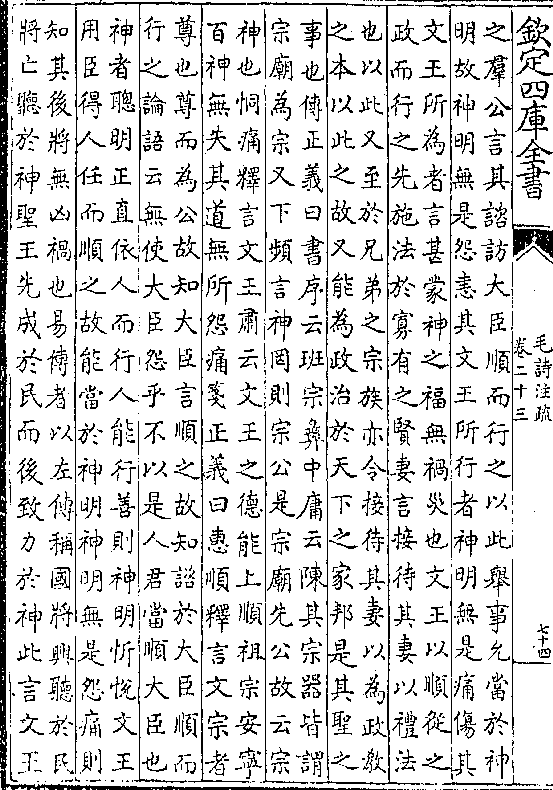 欽定四庫全書
毛詩注疏
卷二十三
七十四
之羣公言其諮訪大臣順而行之以此舉事允當於神
明故神明無是怨恚其文王所行者神明無是痛傷其
文王所為者言甚蒙神之福無禍災也文王以順從之
政而行之先施法於寡有之賢妻言接待其妻以禮法
也以此又至於兄弟之宗族亦令接待其妻以為政教
之本以此之故又能為政治於天下之家邦是其聖之
事也傳正義曰書序云班宗彝中庸云陳其宗器皆謂
宗廟為宗又下頻言神罔則宗公是宗廟先公故云宗
神也恫痛釋言文王肅云文王之德能上順祖宗安寧
百神無失其道無所怨痛箋正義曰惠順釋言文宗者
尊也尊而為公故知大臣言順之故知諮於大臣順而
行之論語云無使大臣怨乎不以是人君當順大臣也
神者聰明正直依人而行人能行善則神明忻悅文王
用臣得人任而順之故能當於神明神明無是怨痛則
知其後將無凶禍也易傳者以左傳稱國將興聽於民
將亡聽於神聖王先成於民而後致力於神此言文王